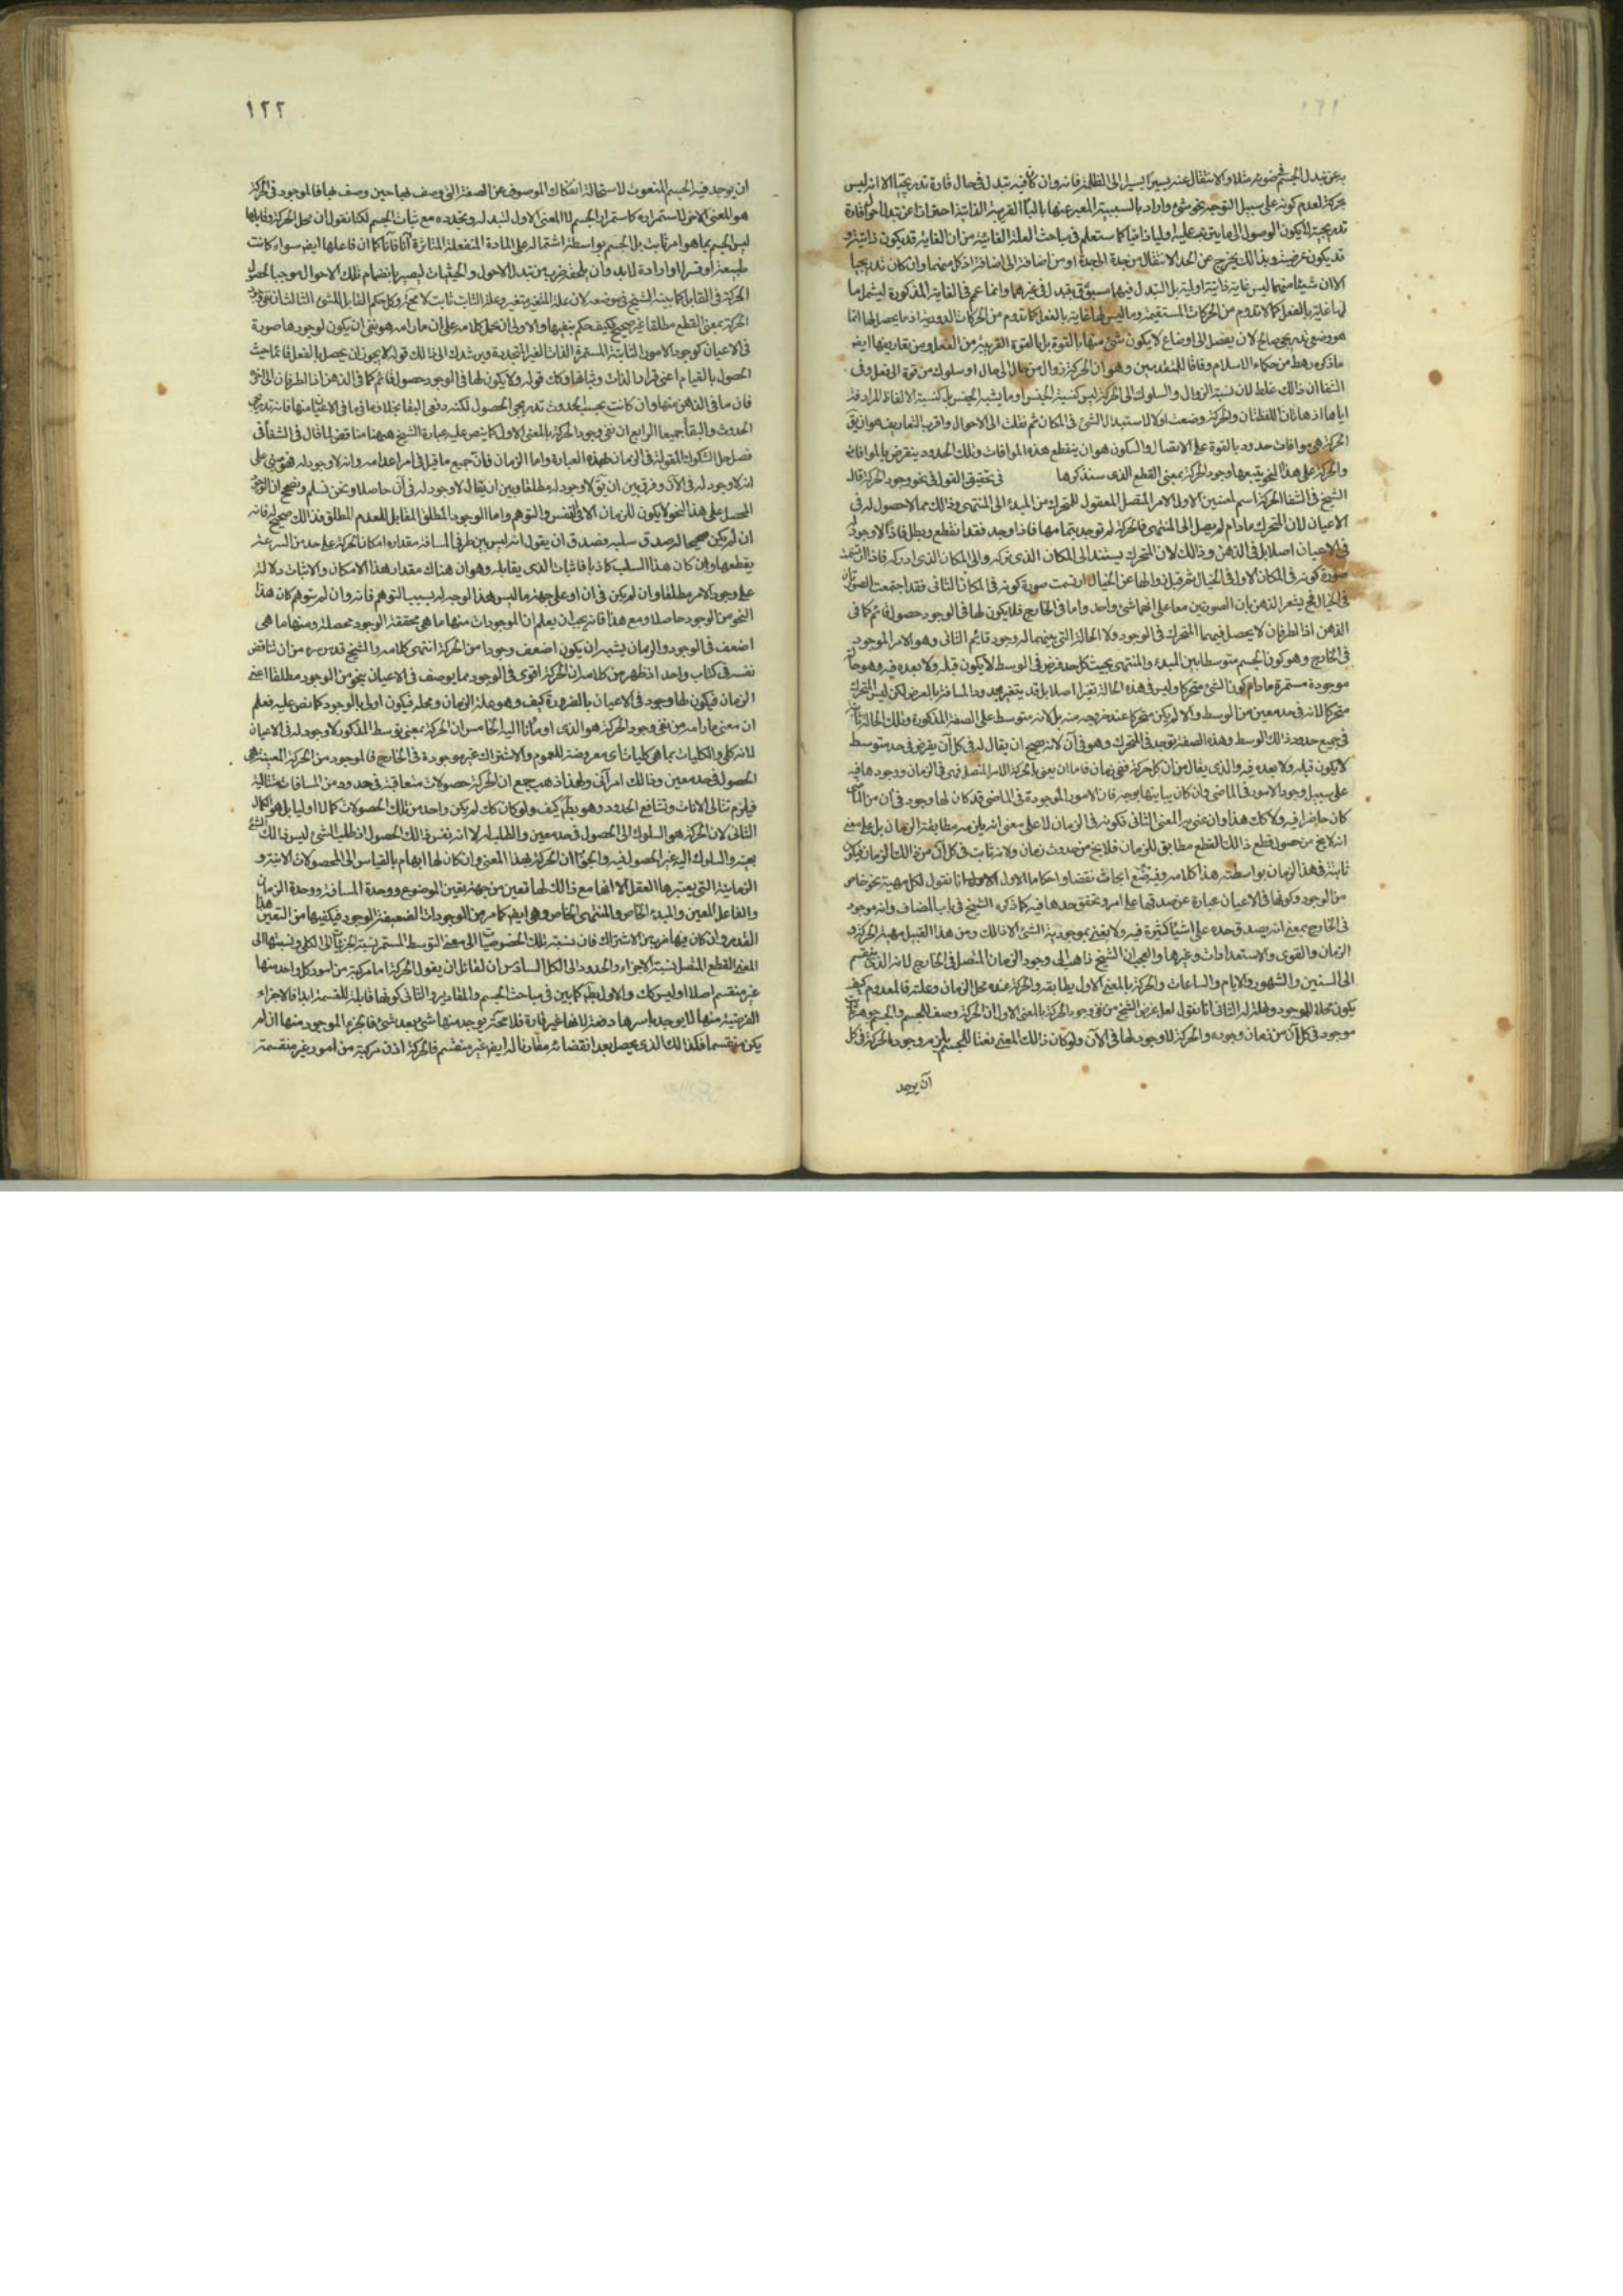 ١٢١
به عن تبدل الجسم في ضوئه مثلا والانتقال عنه يسيرا يسيرا الى الظلمة فانه وان كان فيه تبدل في حال قارة تدريجيا الا انه ليس
بحركة لعدم كونه على سبيل التوجه نحو شئ واراد بالسببية المعبر عنها بالباء القريبة الذاتية احترازا عن تبدل احوال قارة
تدريجية لا يكون الوصول الى ما يترتب عليه اوليا ذاتيا كما ستعلم في مباحث العلة الغائية من ان الغاية قد يكون ذاتية و
قد يكون عرضية وبذالك يخرج عن الحد الانتقال من جدة الى جدة او من اضافة الى اضافة اذ كل منهما وان كان تدريجيا
الا ان شيئا منهما ليس غاية ذاتية اولية بل التبدل فيهما مسبوق بتبدل في غيرهما وانما عم في الغاية المذكورة ليشمل ما
لها غاية بالفعل كما لا تدوم من الحركات المستقيمة وما ليس لها غاية بالفعل كما تدوم من الحركات الدورية اذ ما يحصل لها انما
هو وضعي تدريجي صالح لان يفصل الى اوضاع لا يكون شئ منها بالقوة بل بالقوة القريبة من الفعل ومن تعاريفها ايضا
ما ذكره رهط من حكماء الاسلام وفاقا للمتقدمين وهو ان الحركة زوال من حال الى حال او سلوك من قوة الى فعل وفى
الشفا ان ذالك غلط لان نسبة الزوال والسلوك الى الحركة ليس كنسبة الجنس او ما يشبه الجنس بل كنسبة الالفاظ المرادفة
اياها اذ هاتان اللفظتان والحركة وضعت اولا لاستبدال الشئ في المكان ثم نقلت الى الاحوال واقرب التعاريف هو ان يق
الحركة هى موافاة حدود بالقوة على الاتصال والسكون هو ان ينقطع هذه الموافاة وتلك الحدود ينفرض بالموافاة
والحركة على هذا النحو يتبعها وجود الحركة بمعنى القطع الذى سنذكرها في تحقيق القول في نحو وجود الحركة قال
الشيخ في الشفا الحركة اسم لمعنيين الاول الامر المتصل المعقول للمتحرك من المبدء الى المنتهى وذالك مما لا حصول له في
الاعيان لان المتحرك ما دام لم يصل الى المنتهى فالحركة لم توجد بتمامها فاذا وجد فقد انقطع وبطل فاذا لا وجود له
في الاعيان اصلا بل في الذهن وذالك لان المتحرك يستند الى المكان الذى تركه والى المكان الذى ادركه فاذا ارتسمت
صورة كونه في المكان الاول في الخيال ثم قبل زوالها عن الخيال ارتسمت صورة كونه في المكان الثانى فقد اجتمعت الصورتان
في الخيال فح يشعر الذهن بان الصورتين معا على انهما شئ واحد واما في الخارج فلا يكون لها في الوجود حصول قائم كما في
الذهن اذ الطرفان لا يحصل فيهما المتحرك في الوجود ولا الحالة التى بينهما له وجود قائم الثانى وهو الامر الموجود
في الخارج وهو كون الجسم متوسطا بين المبدء والمنتهى بحيث كل حد فرض في الوسط لا يكون قبله ولا بعده فيه وهو حالة
موجودة مستمرة ما دام كون الشئ متحركا وليس في هذه الحالة تغير اصلا بل قد يتغير حدود المسافة بالعرض لكن ليس المتحرك
متحركا لانه في حد معين من الوسط والا لم يكن متحركا عند خروجه منه بل لانه متوسط على الصفة المذكورة وتلك الحالة ثابتة
في جميع حدود ذالك الوسط وهذه الصفة توجد في المتحرك وهو في آن لانه يصح ان يقال له في كل آن يفرض في حد متوسط
لا يكون قبله ولا بعده فيه والذى يقال من ان كل حركة ففى زمان فاما ان يعنى بالحركة الامر المتصل فهى في الزمان ووجودها فيه
على سبيل وجود الامور في الماضى وان كان يباينها بوجه فان الامور الموجودة في الماضى قد كان لها وجود في آن من الماضى
كان حاضرا فيه ولا كك هذا وان عنى به المعنى الثانى فكونه في الزمان لا على معنى انه يلزمه مطابقة الزمان بل على معنى
انه لا يخ من حصول قطع ذالك القطع مطابق للزمان فلا يخ من حدوث زمان ولانه ثابت في كل آن من ذالك الزمان فيكون
ثابتة في هذا الزمان بواسطته هذا كلامه وفيه ابحاث نقضا واحكاما الاول انا نقول لكل مهية نحو خاص
من الوجود وكونها في الاعيان عبارة عن صدقها على امر وتحقق حدها فيه كما ذكره الشيخ في باب المضاف وانه موجود
في الخارج بمعنى انه يصدق حده على اشيأ كثيرة فيه ولا يعنى بموجودية الشئ الا ذالك ومن هذا القبيل مهية الحركة و
الزمان والقوى والاستعدادات وغيرها والعجب ان الشيخ ذاهب الى وجود الزمان المتصل في الخارج لانه الذى ينقسم
الى السنين والشهور والايام والساعات والحركة بالمعنى الاول يطابقه والحركة عنده محل الزمان وعلته فالمعدوم كيف
يكون محلا للموجود وعلة له الثانى انا نقول لعل غرض الشيخ من نفى وجود الحركة بالمعنى الاول ان الحركة وصف للجسم والجسم جوهر ثابت
موجود في كل آن من زمان وجوده والحركة لا وجود لها في الآن ولو كان ذالك المعنى نعتا للجسم يلزم وجود الحركة في كل
آن يوجد
١٢٢
ان يوجد فيه الجسم المنعوت لاستحالة انفكاك الموصوف عن الصفة التى وصف بها حين وصف بها فالموجود في الحركة
هو المعنى الآخر لاستمراره كاستمرار الجسم لا المعنى الاول لتبدله وتجدده مع ثبات الجسم لكنا نقول ان محل الحركة وقابلها
ليس الجسم بما هو امر ثابت بل الجسم بواسطة اشتماله على المادة المنفعلة المتاثرة آنا فآنا كما ان فاعلها ايضا سواء كانت
طبيعة او قسرا او ارادة لابد وان يلحقه ضرب من تبدل الاحوال والحيثيات ليصير بانضمام تلك الاحوال موجبا لحصول
الحركة في القابل كما بينه الشيخ في موضعه لان علة المتغير متغير وعلة الثابت ثابت لا محة وكك حكم القابل للشئ الثالث ان نفى وجود
الحركة بمعنى القطع مطلقا غير صحيح كيف حكم بنفيها والاولى ان يحمل كلامه على ان ما رامه هو نفى ان يكون لوجودها صورة
في الاعيان كوجود الامور الثابتة المستمرة الذات الغير المتجددة ويرشدك الى ذالك قوله لا يجوز ان يحصل بالفعل قائما حيث
الحصول بالقيام اعنى قرار الذات وثباتها وكك قوله ولا يكون لها في الوجود حصول قائم كما في الذهن اذ الطرفان الى آخره
فان ما في الذهن منها وان كانت بحسب الحدوث تدريجى الحصول لكنه دفعى البقا بخلاف ما في الاعيان منها فانه تدريجى
الحدوث والبقأ جميعا الرابع ان نفى وجود الحركة بالمعنى الاول كما ينص عليه عبارة الشيخ هيهنا مناقض لما قال في الشفأ في
فصل حل الشكوك المقولة في الزمان بهذه العبارة واما الزمان فان جميع ما قيل في امر اعدامه وانه لا وجود له فهو مبنى على
انه لا وجود له في الآن وفرق بين ان يق لا وجود له مطلقا وبين ان يقال لا وجود له في آن حاصلا ونحن نسلم ونصحح ان الوجود
المحصل على هذا النحو لا يكون للزمان الا في النفس والتوهم واما الوجود المطلق المقابل للعدم المطلق فذالك صحيح له فانه
ان لم يكن صحيحا له صدق سلبه فصدق ان يقول انه ليس بين طرفى المسافة مقدار امكان لحركة على حد من السرعة
يقطعها وان كان هذا السلب كاذبا فاثبات الذى يقابله وهو ان هناك مقدار هذا الامكان والاثبات دلالة
على وجود الامر مطلقا وان لم يكن في آن او على جهة ما ليس هذا الوجه له بسبب التوهم فانه وان لم يتوهم كان هذا
النحو من الوجود حاصلا ومع هذا فانه يجب ان يعلم ان الموجودات منها ما هى محققة الوجود محصلة ومنها ما هى
اضعف في الوجود والزمان يشبه ان يكون اضعف وجودا من الحركة انتهى كلامه والشيخ قدس سره من ان يناقض
نفسه في كتاب واحد اذ ظهر من كلامه ان الحركة اقوى في الوجود مما يوصف في الاعيان بنحو من الوجود مطلقا اعنى
الزمان فيكون لها وجود في الاعيان بالضرورة كيف وهو علة الزمان ومحله فيكون اولى بالوجود كما نص عليه فعلم
ان معنى ما رامه من نفى وجود الحركة هو الذى اومأنا اليه الخامس ان الحركة بمعنى توسط المذكور لا وجود له في الاعيان
لانه كلى والكليات بما هى كليات اى معروضة للعموم والاشتراك غير موجودة في الخارج فالموجود من الحركة المعينة هى
الحصول في حد معين وذالك امر آنى ولهذا ذهب جمع ان الحركة حصولات متعاقبة في حدود من المسافات متتالية
فيلزم تتالى الانات وتشافع الحدود وهو بط كيف ولو كان كك لم يكن واحد من تلك الحصولات كمالا اوليا بل هو الكمال
الثانى لان الحركة هو السلوك الى الحصول في حد معين والطلب له لا انه نفس ذالك الحصول اذ طلب الشئ ليس ذالك الشئ
بعينه والسلوك اليه غير الحصول فيه والجواب ان الحركة بهذا المعنى وان كان لها ابهام بالقياس الى الحصولات الانية و
الزمانية التى يعتبرها العقل الا انها مع ذالك لها تعين من جهة تعين الموضوع ووحدة المسافة ووحدة الزمان
والفاعل المعين والمبدء الخاص والمنتهى الخاص وهى ايضا كما مر من الوجودات الضعيفة الوجود فيكفيها من التعين هذا
القدر وان كان فيها ضرب من الاشتراك فان نسبة تلك الخصوصيات الى معنى التوسط المستمر نسبة الجزئيات الى الكلى ونسبتها الى
المعنى القطع المتصل نسبة الاجزاء والحدود الى الكل السادس ان لقائل ان يقول الحركة اما مركبة من امور كل واحد منها
غير منقسم اصلا او ليس كك والاول بط كما بين في مباحث الجسم والمقادير والثانى كونها قابلة للقسمة ابدا فالاجزاء
الفرضية منها لا يوجد باسرها دفعة لانها غير قارة فلا محة يوجد منها شئ بعد شئ فالجزء الموجود منها ان لم
يكن منقسما فكذالك الذى يحصل بعد انقضائه مقارنا له ايضا غير منقسم فالحركة اذن مركبة من امور غير منقسمة